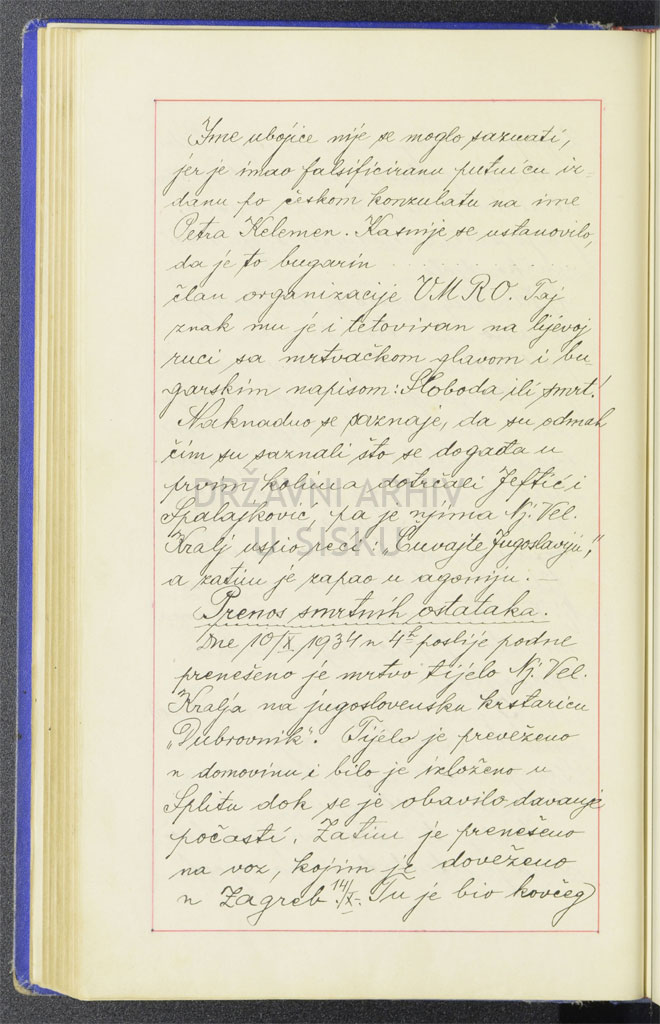 Ime ubojice nije se moglo saznati,
jer je imao falsificiranu putnicu iz-
danu po českom konzulatu na ime
Petra Kelemen. Kasnije se ustanovilo,
da je to bugarin . . . . . . . . . .
član organizacije VMRO. Taj
znak mu je i tetoviran na lijevoj
ruci sa mrtvačkom glavom i bu
garskim napisom: Sloboda ili smrt!
Naknadno se saznaje, da su odmah
čim su saznali što se događa u
prvim kolima dotrčali Jeftić i
Spalajković, pa je njima Nj. Vel.
Kralj uspio reći: „Čuvajte Jugoslaviju,"
a zatim je zapao u agoniju. —
Prenos smrtnih ostataka.
Dne 10/X 1934 u 4h poslije podne
prenešeno je mrtvo tijelo Nj. Vel.
Kralja na jugoslovensku krstaricu
„Dubrovnik". Tijelo je preveženo
u domovinu i bilo je izloženo u
Splitu dok se je obavilo davanje
počasti. Zatim je prenešeno
na voz, kojim je doveženo
u Zagreb 14/X. Tu je bio kovčeg
DRŽAVNI ARHIV
U SISKU